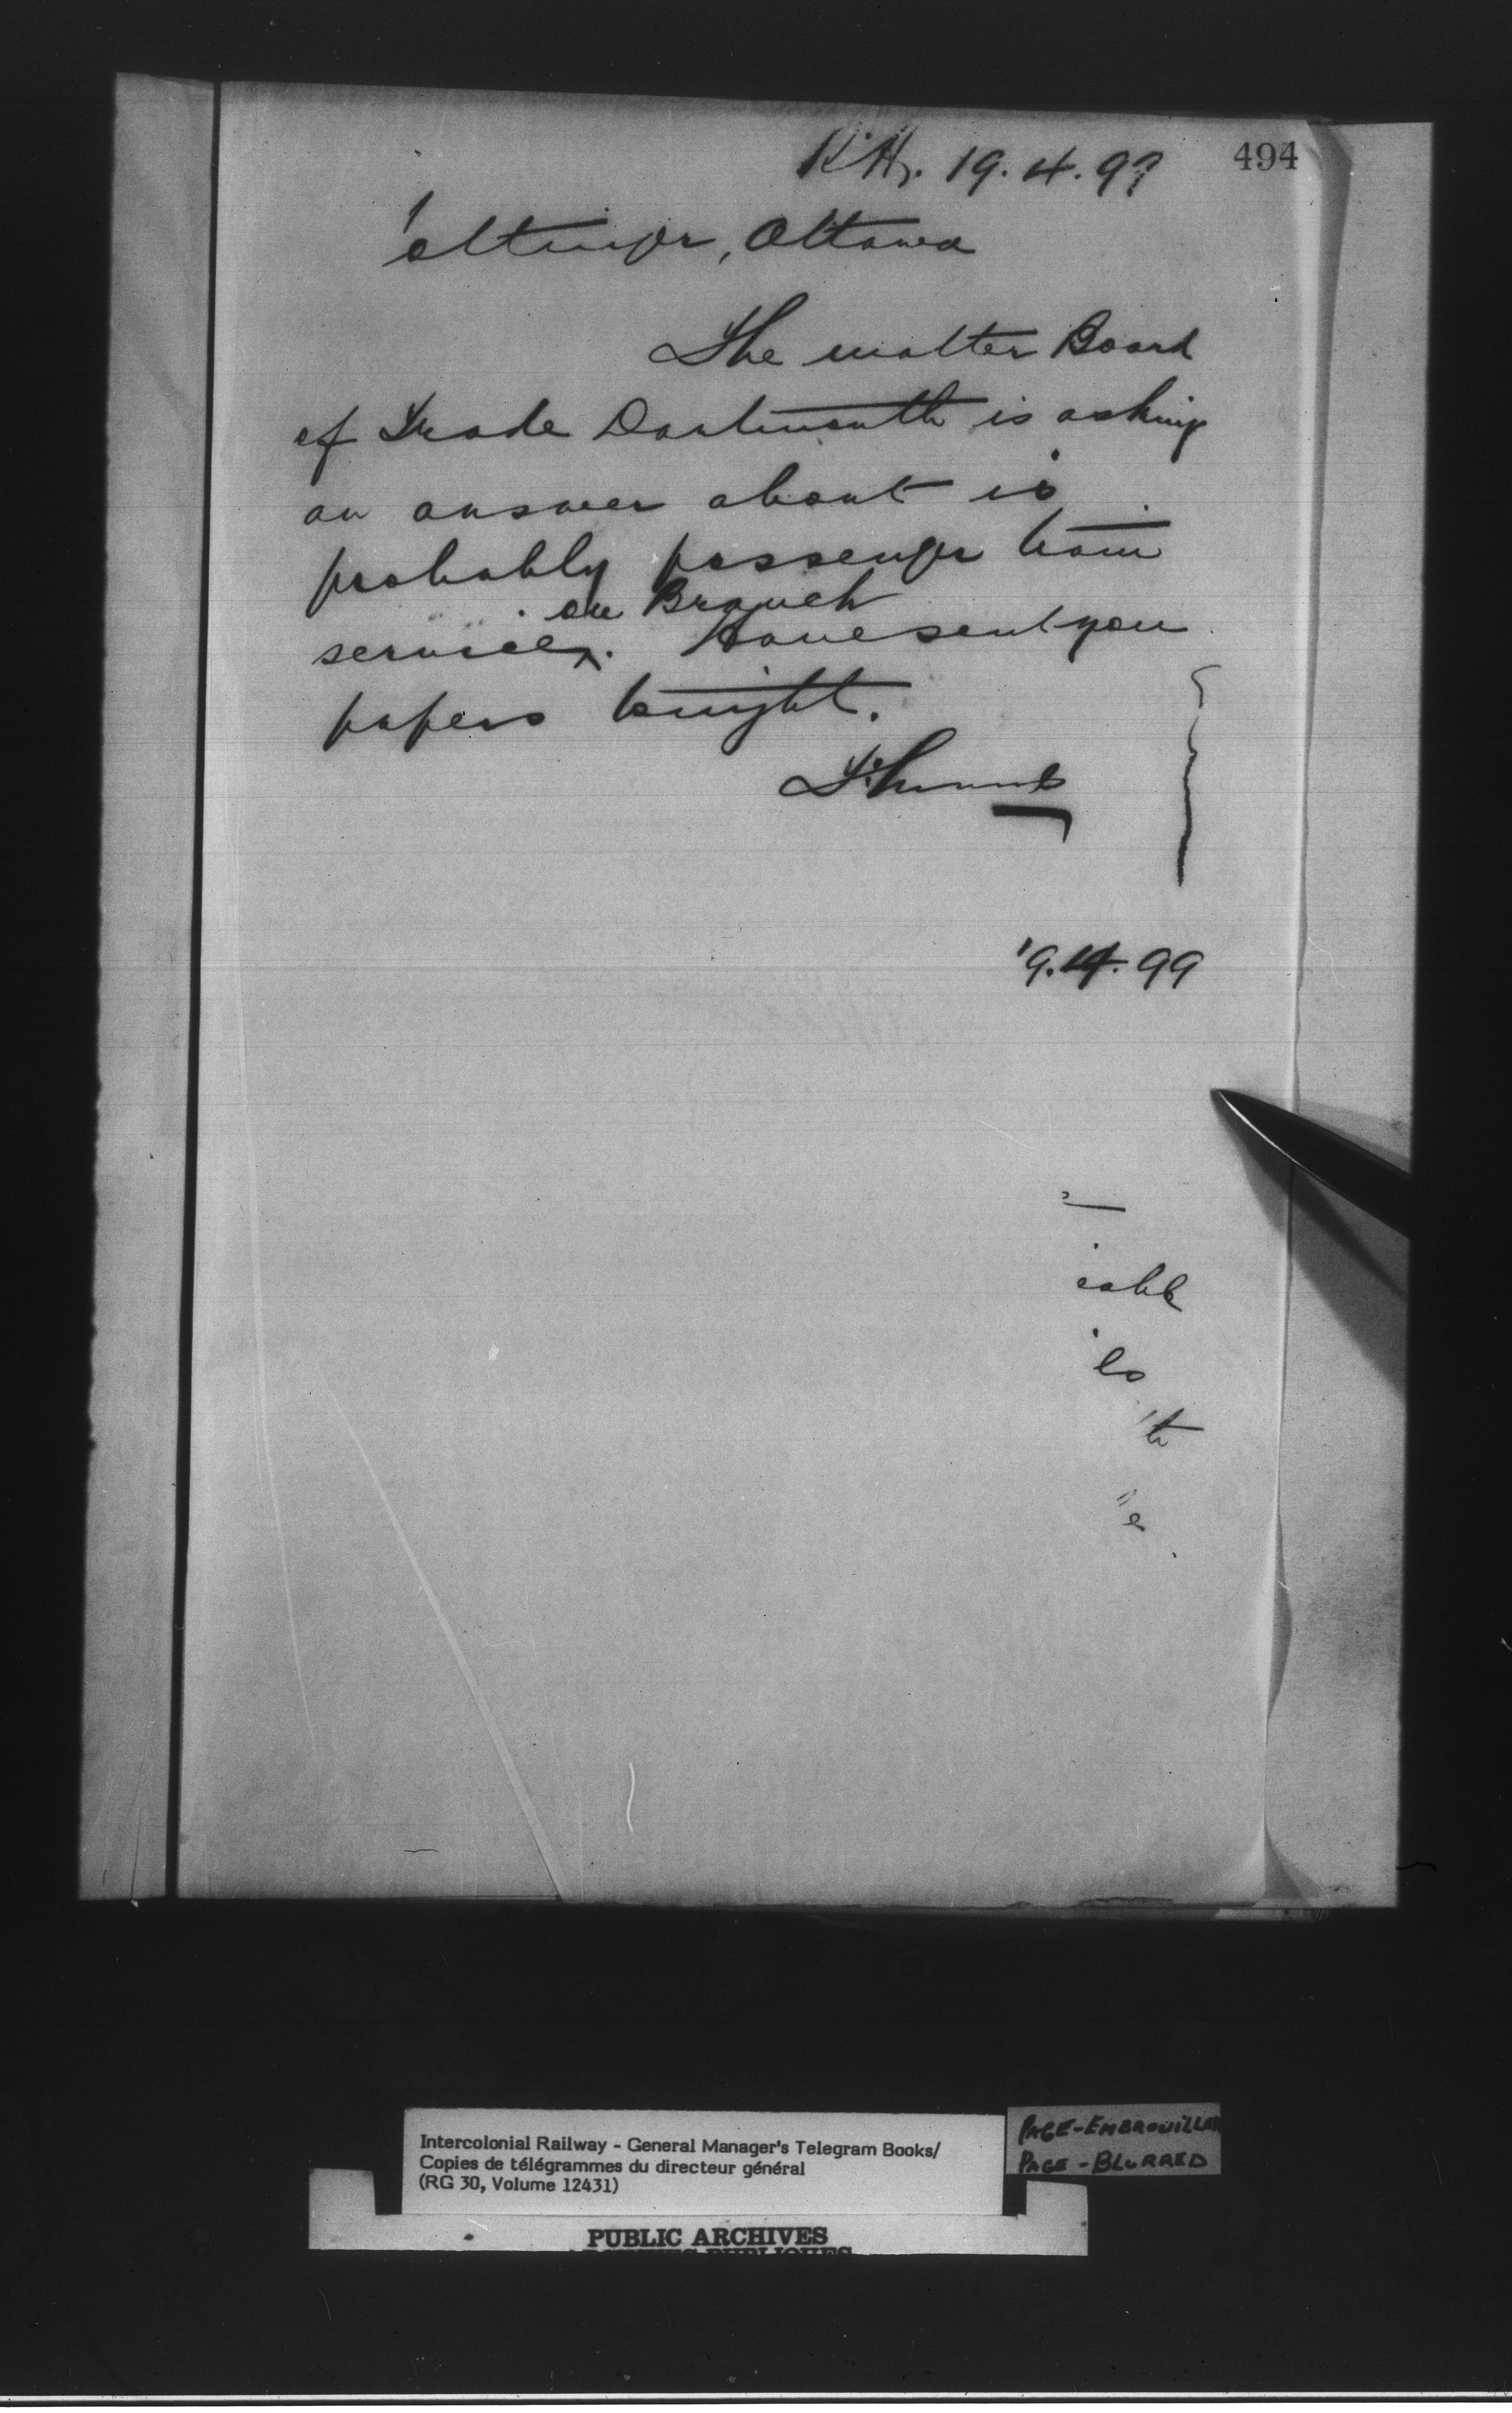 494
19.4.99
ottinger, Ottawa
The matter Board
of Trade Dartmouth is asking
an answer about is
probably passenger train
on Branch
service. Have sent you
papers tonight.
19.4.99
eable
th
e
Intercolonial Railway - General Manager's Telegram Books/
Copies de télégrammes du directeur général
(RG 30, Volume 12431)
PAGE-EMBROUILLEE
PAGE - BLURRED
PUBLIC ARCHIVES